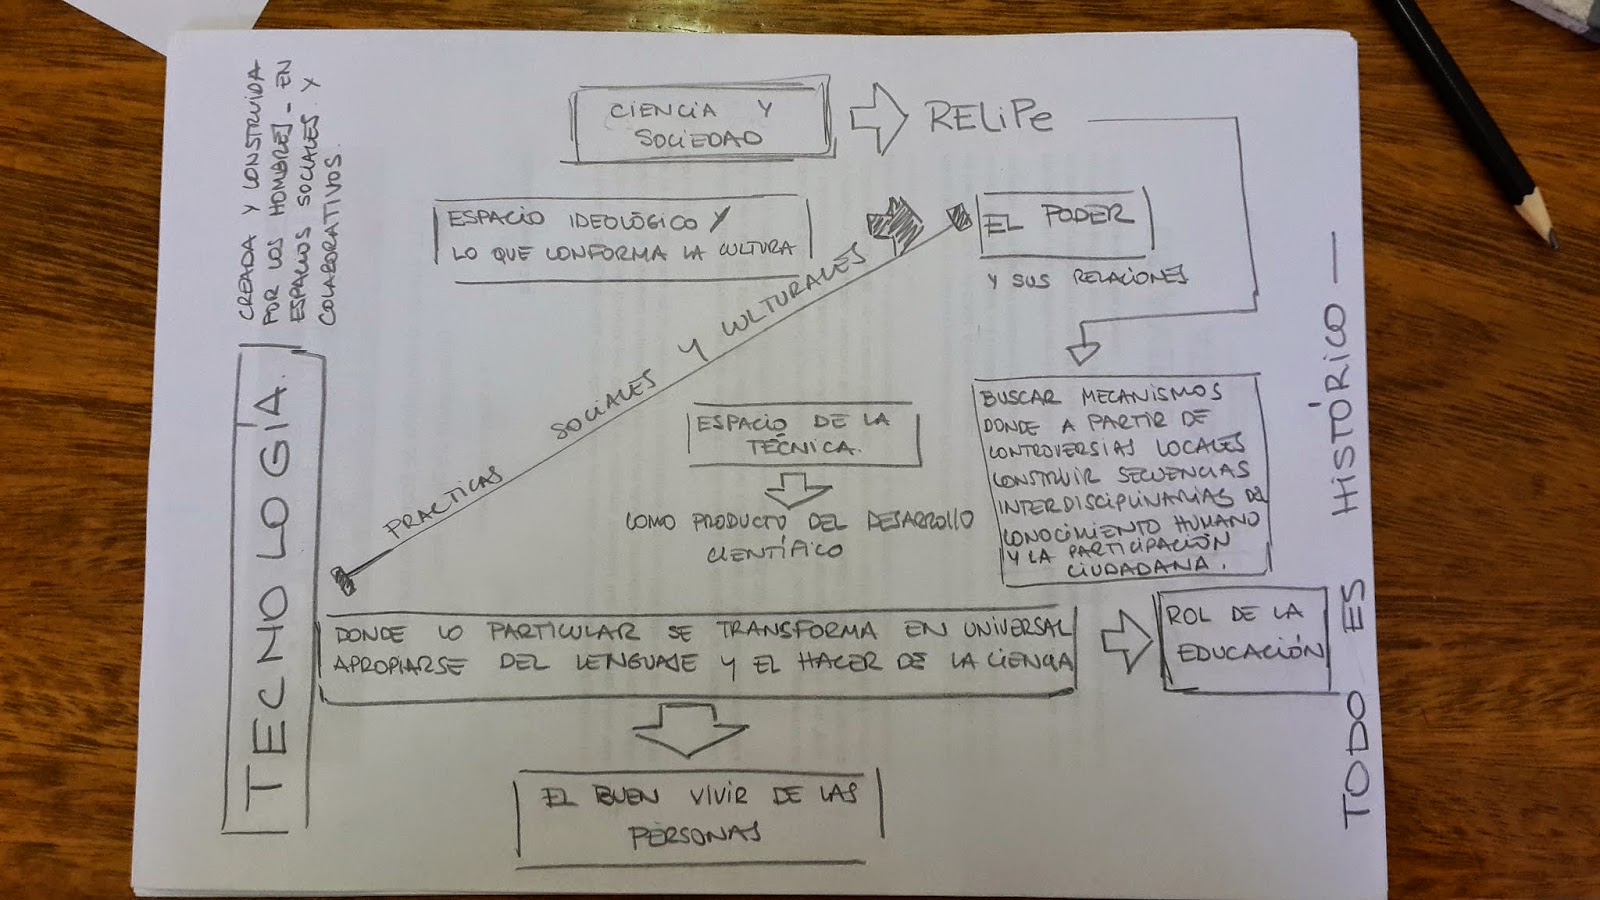 CREADA Y CONSTRUIDA
POR LOS HOMBRES - EN
ESPACIOS SOCIALES Y
COLABORATIVOS.
TECNOLOGÍA.
CIENCIA Y
SOCIEDAD
RELIPe
ESPACIO IDEOLÓGICO Y
LO QUE CONFORMA LA CULTURA
EL PODER
Y SUS RELACIONES
PRACTICAS SOCIALES Y CULTURALES
ESPACIO DE LA
TÉCNICA.
COMO PRODUCTO DEL DESARROLLO
CIENTÍFICO
BUSCAR MECANISMOS
DONDE A PARTIR DE
CONTROVERSIAS LOCALES
CONSTRUIR SECUENCIAS
INTERDISCIPLINARIAS DEL
CONOCIMIENTO HUMANO
Y LA PARTICIPACIÓN
CIUDADANA.
DONDE LO PARTICULAR SE TRANSFORMA EN UNIVERSAL
APROPIARSE DEL LENGUAJE Y EL HACER DE LA CIENCIA
ROL DE LA
EDUCACIÓN
EL BUEN VIVIR DE LAS
PERSONAS
TODO ES HISTÓRICO —